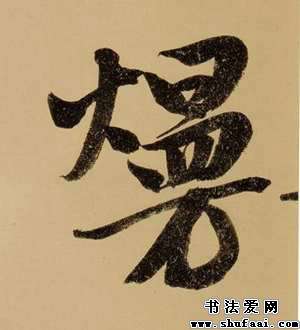 熳
书法爱网
www.shufaai.com